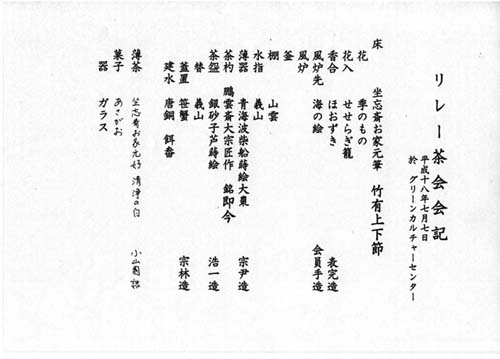 リレー茶会会記
平成十八年七月七日
於 グリーンカルチャーセンター
床 坐忘斎お家元筆 竹有上下節
花 季のもの
花入 せせらぎ籠
香合 ほおずき 表完造
風炉先 海の絵 会員手造
風炉
釜
棚 山雲
水指 義山
薄器 青海波柴船蒔絵大棗 宗尹造
茶杓 鵬雲斎大宗匠作 銘即今
茶盌 銀砂子芦蒔絵 浩一造
替 義山
蓋置 笹蟹 宗林造
建水 唐銅 餌畚
薄茶 坐忘斎お家元好 清浄の白 小山園詰
菓子 あさがお
器 ガラス